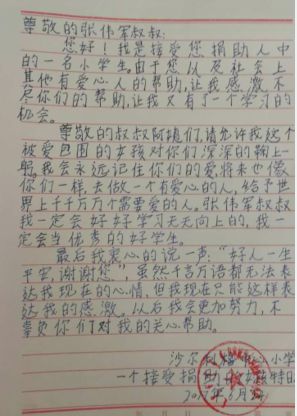 尊敬的张伟军叔叔:
您好!我是接受您捐助人中
的一名小学生,由于您以及社会上
其他有爱心人的帮助,让我感激不
尽你们的帮助,让我又有了一个学习的
机会。
尊敬的叔叔阿姨们,请允许我这个
被爱包围的女孩对你们深深的鞠上一
躬。我会永远记住你们的爱,将来也像
你们一样,去做一个有爱心的人,给予世
界上千千万万个需要爱的人,张伟军叔叔
我一定会好好学习天天向上的,我一
定会当优秀的好学生。
最后我衷心的说一声:“好人一生
平安,谢谢您”,虽然千言万语都无法表
达我现在的心情,但我现在只能这样表
达我的感激。以后我会更加努力,不
辜负你们对我的关心帮助。
沙尔 小学
一个接受捐助 女 特日
2017年6月